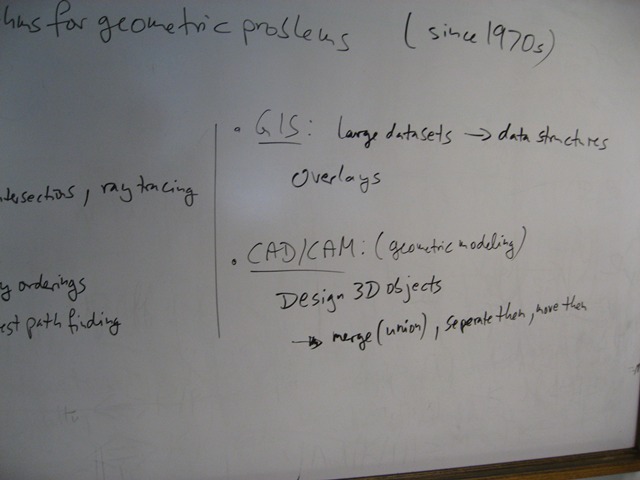 hms for geometric problems (since 1970s)
ntersections, ray tracing
y orderings
est path finding
• GIS: large datasets → data structures
Overlays
• CAD/CAM: (geometric modeling)
Design 3D objects
→ merge (union), seperate them, move them